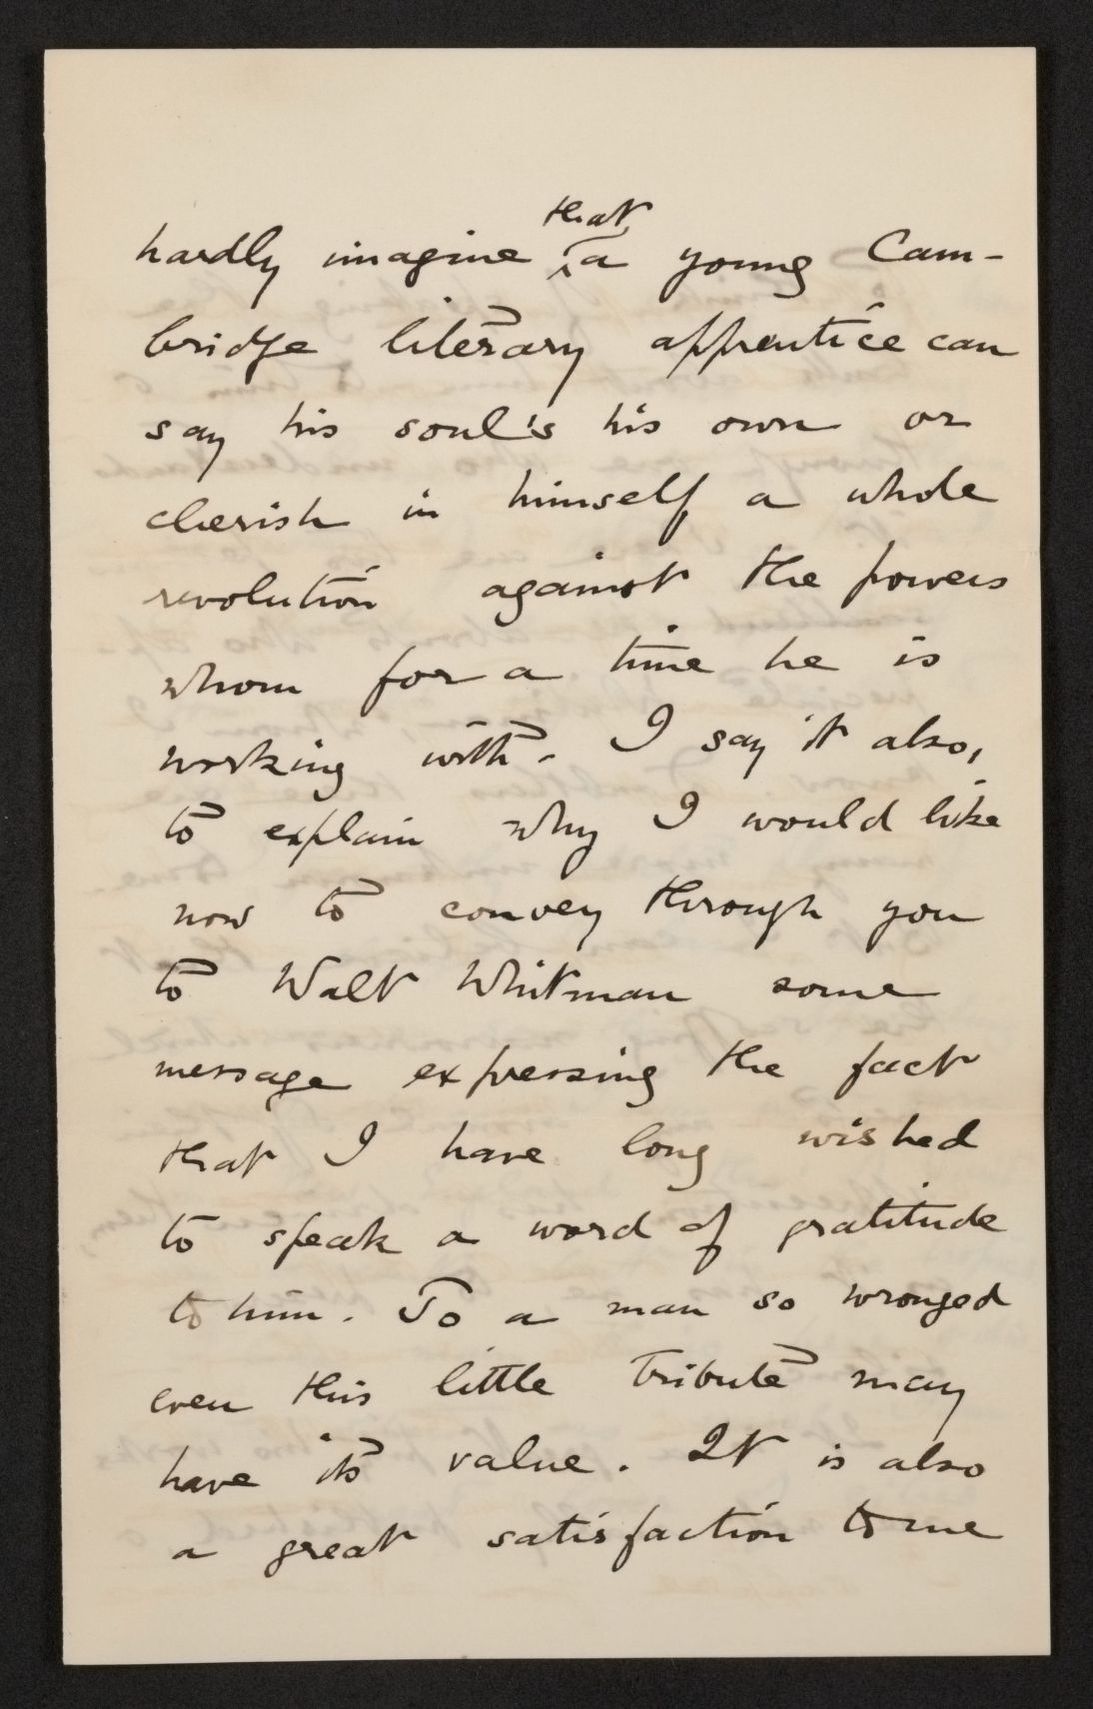 that
hardly imagine ‸a young Cam-
bridge literary apprentice can
say his soul's his own or
cherish in himself a whole
revolution against the powers
whom for a time he is
working with. I say it also,
to explain why I would like
now to convey through you
to Walt Whitman some
message expressing the fact
that I have long wished
to speak a word of gratitude
to him. To a man so wronged
even this little tribute may
have its value. It is also
a great satisfaction to me